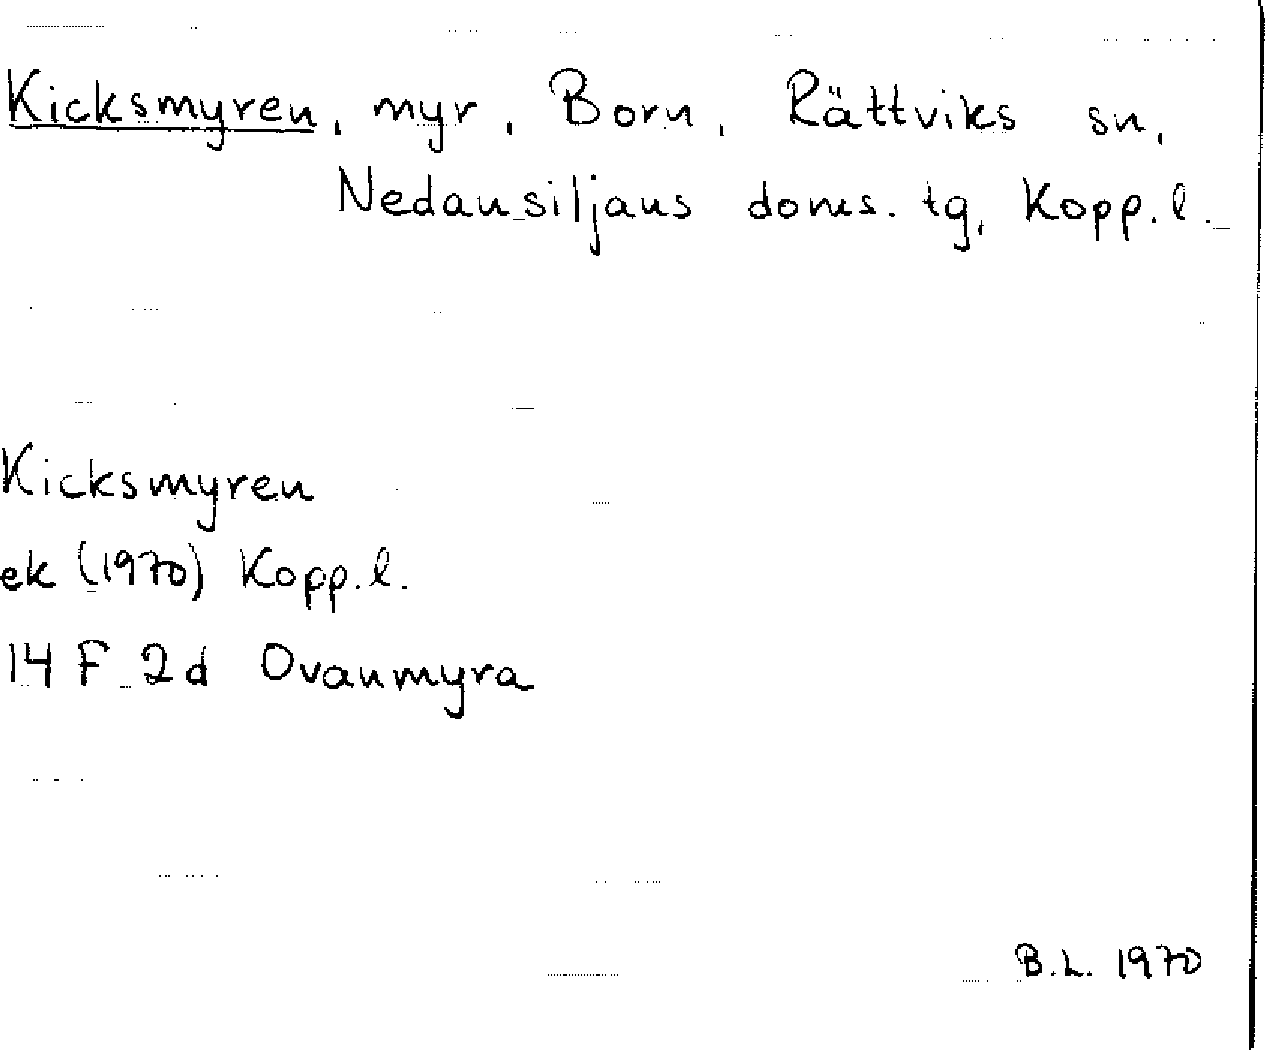 Kicksmyren, myr, Born, Rättviks sn,
Nedansiljans doms. tg, Kopp.l.
Kicksmyren
ek (1970) Kopp.l.
14 F 2d Ovanmyra
B.L. 1970